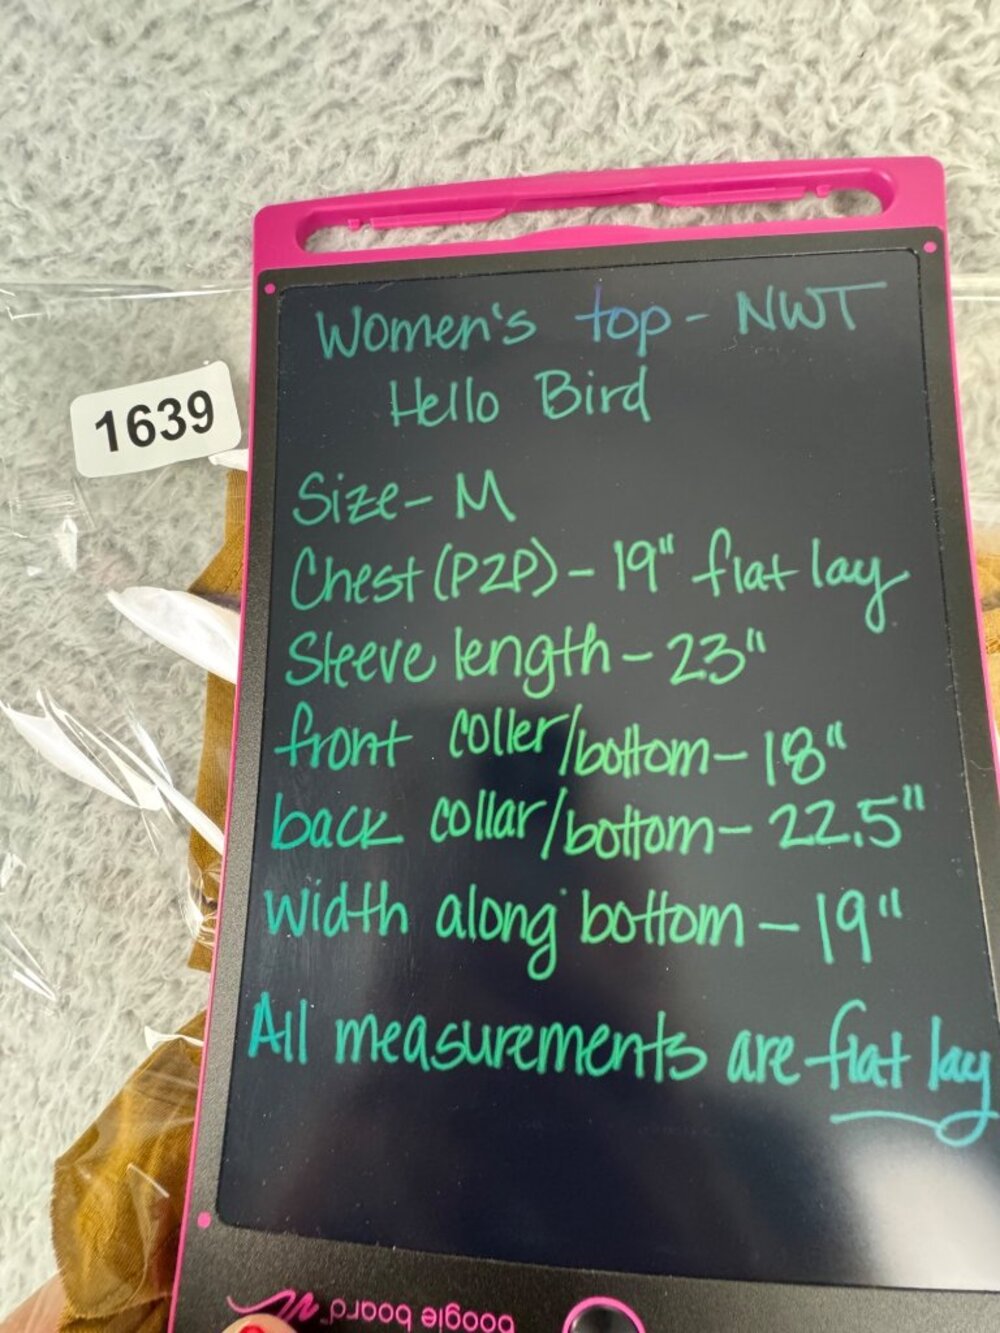 Women's top - NWT
Hello Bird
1639
Size - M
Chest (P2P) - 19" flat lay
Sleeve length - 23"
front coller/bottom - 18"
back collar/bottom - 22.5"
width along bottom - 19"
All measurements are flat lay
boogie board